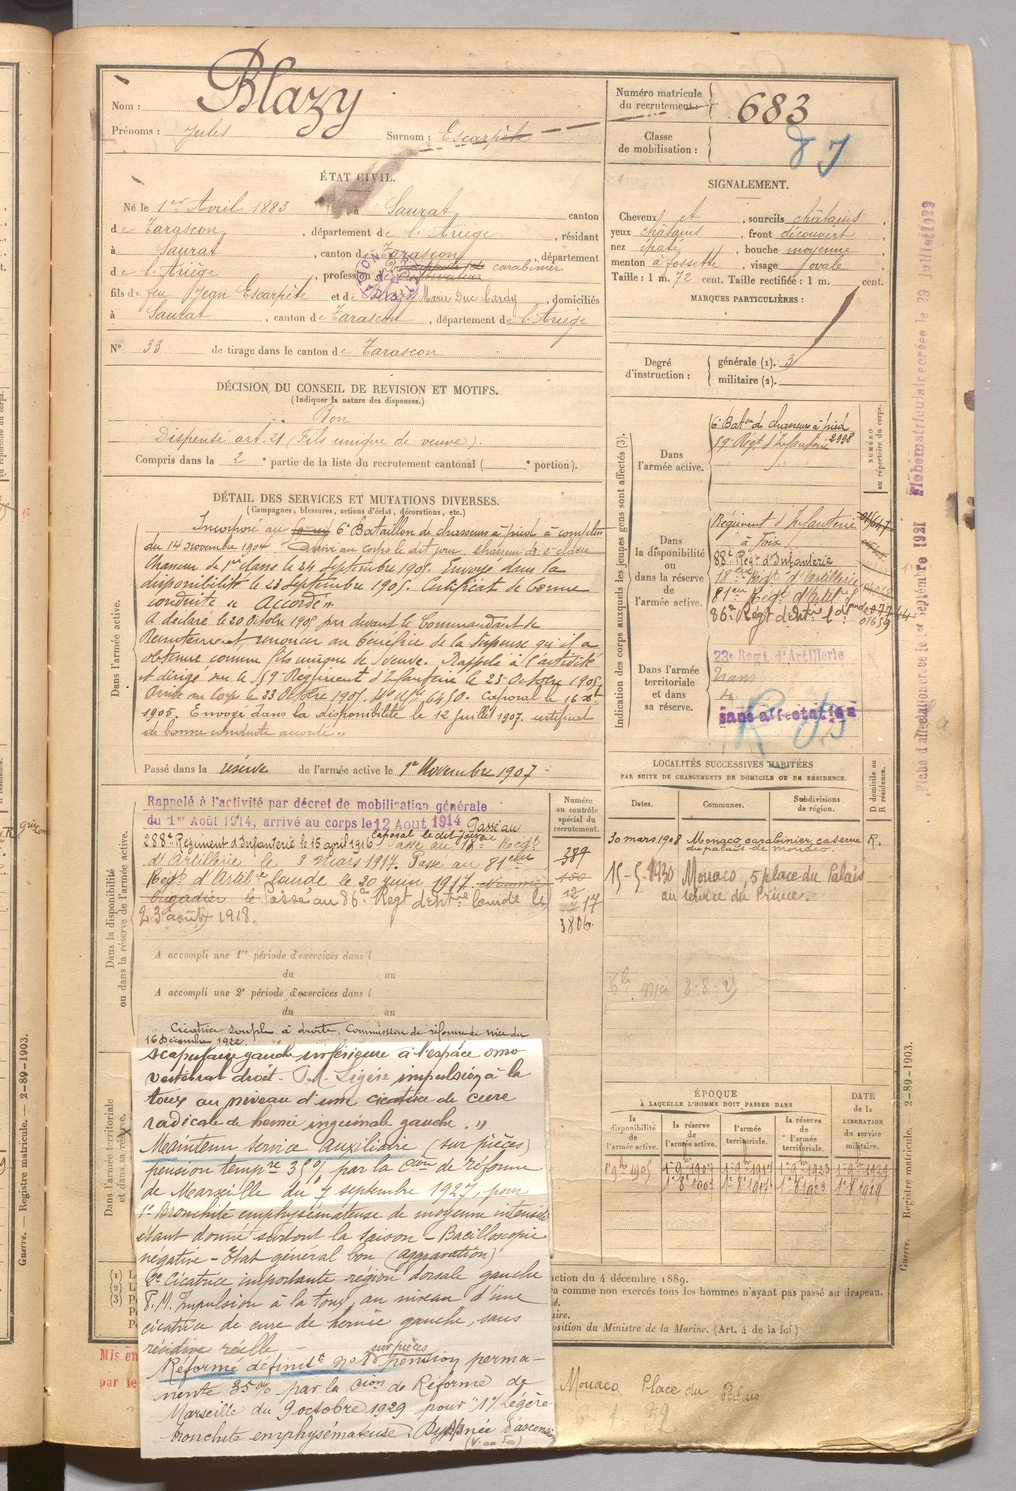 Nom : Blazy
Prénoms : Jules Surnom : Escarpète
Numéro matricule
du recrutement : 683
Classe
de mobilisation :
ÉTAT CIVIL.
Né le 1er Avril 1883 à Saurat, canton
de Tarascon, département de l'Ariège, résidant
à Saurat, canton de Tarascon, département
de l'Ariège, profession de carabinier
fils de feu Jean Escarpète et de Blazy Marie Duc Cardy, domiciliés
à Saurat, canton de Tarascon, département de l'Ariège
N° 33 de tirage dans le canton de Tarascon
SIGNALEMENT.
Cheveux et, sourcils châtains
yeux châtains, front découvert
nez épaté, bouche moyenne
menton à fossette, visage ovale
Taille : 1 m. 72 cent. Taille rectifiée : 1 m. cent.
MARQUES PARTICULIÈRES :
Degré
d'instruction :
générale (1). 3
militaire (2).
DÉCISION DU CONSEIL DE REVISION ET MOTIFS.
(Indiquer la nature des dispenses.)
Bon
Dispensé art. 21 (Fils unique de veuve).
Compris dans la 2e partie de la liste du recrutement cantonal ( e portion).
DÉTAIL DES SERVICES ET MUTATIONS DIVERSES.
(Campagnes, blessures, actions d'éclat, décorations, etc.)
Dans l'armée active.
Incorporé au 6e Bataillon de chasseurs à pied à compter
du 14 novembre 1904. Arrivé au corps le dit jour, chasseur de 2e classe
Chasseur de 1re classe le 24 septembre 1905. Envoyé dans la
disponibilité le 23 septembre 1905. Certificat de bonne
conduite "Accordé".
A déclaré le 20 Octobre 1905 par devant le Commandant de
Recrutement, renoncer au bénéfice de la dispense qu'il a
obtenue comme fils unique de veuve. Rappelé à l'activité
et dirigé sur le 59e Régiment d'Infanterie le 23 Octobre 1905.
Arrivé au corps le 23 Octobre 1905. No Mle 6450. Caporal le 16
1905. Envoyé dans la disponibilité le 12 juillet 1907. certificat
de bonne conduite accordé "
Passé dans la réserve de l'armée active le 1er Novembre 1907
Indication des corps auxquels les jeunes gens sont affectés (3).
NUMÉRO
au répertoire du corps.
Dans
l'armée active.
6e Baton de chasseurs à pied
59e Régt d'Infanterie 2998
Dans
la disponibilité
ou
dans la réserve
de
l'armée active.
Régiment d'Infanterie
à Foix
88e Régt d'Infanterie
18e Régt d'Artillerie
81e Régt d'Artie
86e Régt d'Artie lde
Dans l'armée
territoriale
et dans
sa réserve.
23e Regt d'Artillerie
sans affectation
LOCALITÉS SUCCESSIVES HABITÉES
PAR SUITE DE CHANGEMENTS DE DOMICILE OU DE RÉSIDENCE.
Dates. Communes. Subdivisions
de région. D domicile ou
R résidence.
30 mars 1908 Monaco, carabinier, caserne R.
au palais de monaco.
15-5-1930 Monaco, 5 place du Palais
au service du Prince.
8-8-
Dans la disponibilité
ou dans la réserve de l'armée active.
Rappelé à l'activité par décret de mobilisation générale
du 1er Août 1914, arrivé au corps le 12 Aout 1914
Caporal le dit jour. Passé au
288e Régiment d'Infanterie le 15 avril 1916. Passé au 18e Régt
d'Artillerie le 3 Mars 1917. Passé au 81eme
Régt d'Artie lourde le 30 juin 1917. Nommé
brigadier le Passé au 86e Regt d'Artrie lourde le
23 août 1918.
Numéro
au contrôle
spécial du
recrutement.
389
17
3806
A accompli une 1re période d'exercices dans l
du au
A accompli une 2e période d'exercices dans l
du au
Dans l'armée territoriale
et dans sa réserve.
Cicatrice souple à droite. Commission de réforme de Nice du
16 Décembre 1922.
scapulaire gauche inférieure à l'espace omo
vertébral droit - P.M. Légère impulsion à la
toux au niveau d'une cicatrice de cure
radicale de hernie inguinale gauche. "
Maintenu service auxiliaire (sur pièces)
pension tempre 35% par la Cion de réforme
de Marseille du 7 septembre 1927, pour
1° Bronchite emphysémateuse de moyenne intensité
étant donné surtout la saison - Bacilloscopie
négative - Etat général bon (aggravation)
2° Cicatrice importante région dorsale gauche
P.M. Impulsion à la toux, au niveau d'une
cicatrice de cure de hernie gauche, sans
récidive réelle. -
Réformé définitt n° 1 sur pièces pension perma-
nente 35% par la Cion de Réforme de
Marseille du 9 octobre 1929 pour "1° Légère
bronchite emphysémateuse. Dyspnée d'ascension
ÉPOQUE
À LAQUELLE L'HOMME DOIT PASSER DANS
la
disponibilité
de
l'armée active.
la réserve
de
l'armée active.
l'armée
territoriale.
la réserve
de
l'armée
territoriale.
DATE
de la
LIBÉRATION
du service
militaire.
1er 9bre 1905 1er 9bre 1907 1er 9bre 1917 1er 9bre 1923 1er 9bre 1929
1er 8bre 1907 1er 8bre 1917 1er 8bre 1923 1er 8bre 1929
ction du 4 décembre 1889.
a comme non exercés tous les hommes n'ayant pas passé au drapeau.
position du Ministre de la Marine. (Art. 4 de la loi.)
Mis en
par le
Monaco Place du Palais
Guerre. Registre matricule. — 2-89-1903.
Guerre. — Registre matricule. — 2-89-1903.
Fiche d'affectation créée le 1er Septembre 1921
Fiche matriculaire créée le 29 juillet 1933